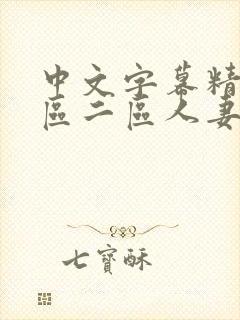 中文字幕精
區二區人妻
七寶酥